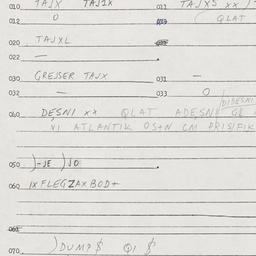 010 TAJX TAJ1X 011 TAJX5 XX
012 O 013 QLAT
020 TAJXL
022 —
030 GREJSER TAJX 031 —
032 — 033 O
040 DESNI XX QLAT ADESNI
VI ATLANTIK OS+N CM
050 )-JE )JO
060 IXFLEGZAXBOD+
070 )DUM?$ QI $